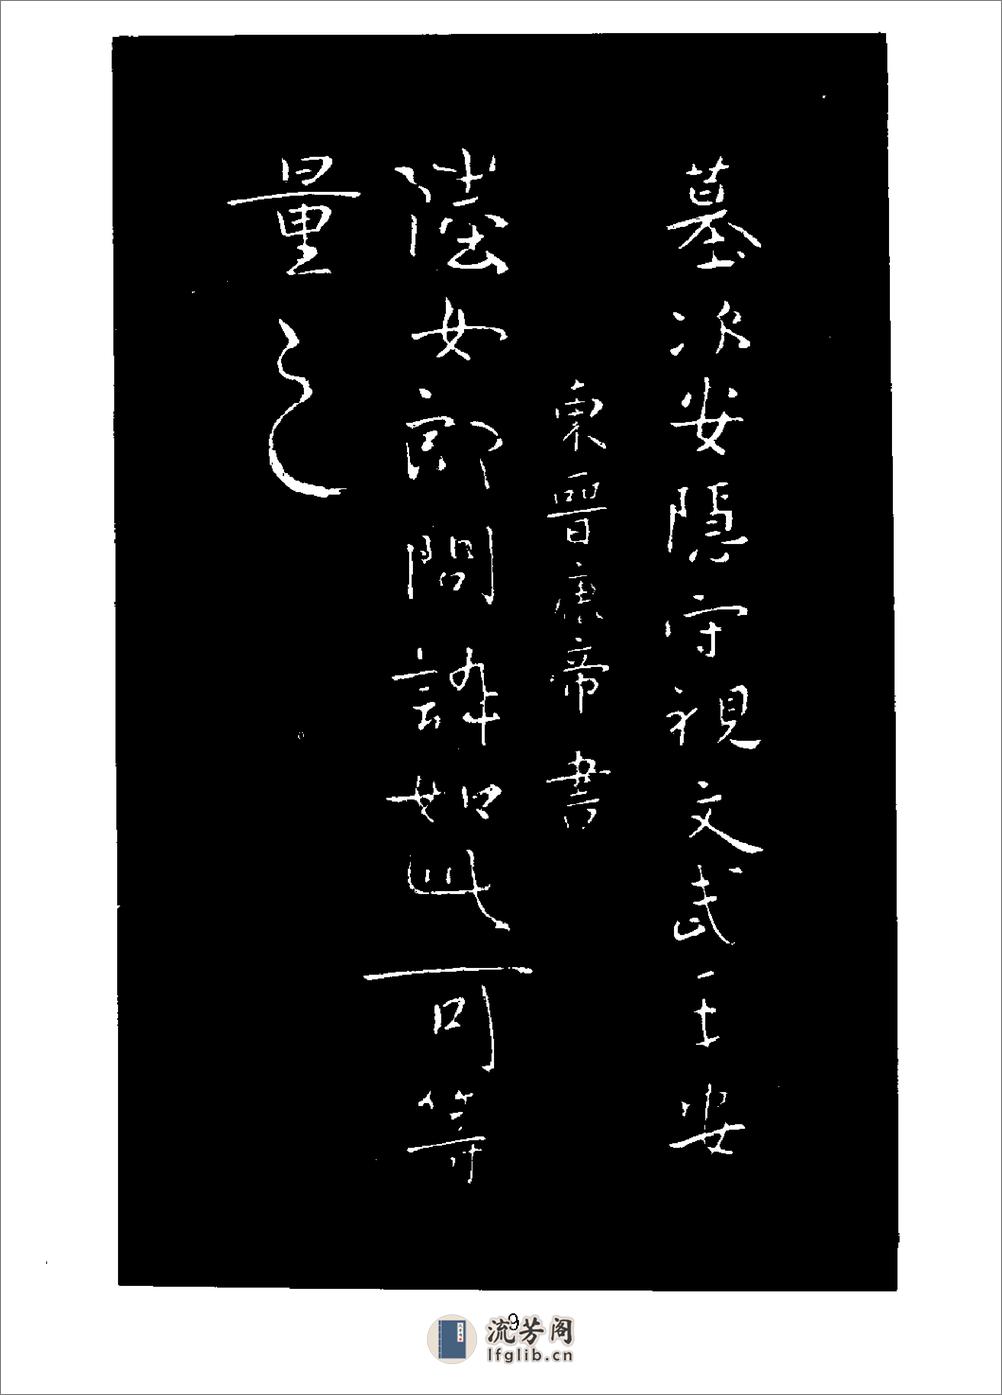 墓次安隱守視文武王安
東晉康帝書
陸女郎問訴如此可等
量之
9
流芳阁
lfglib.cn